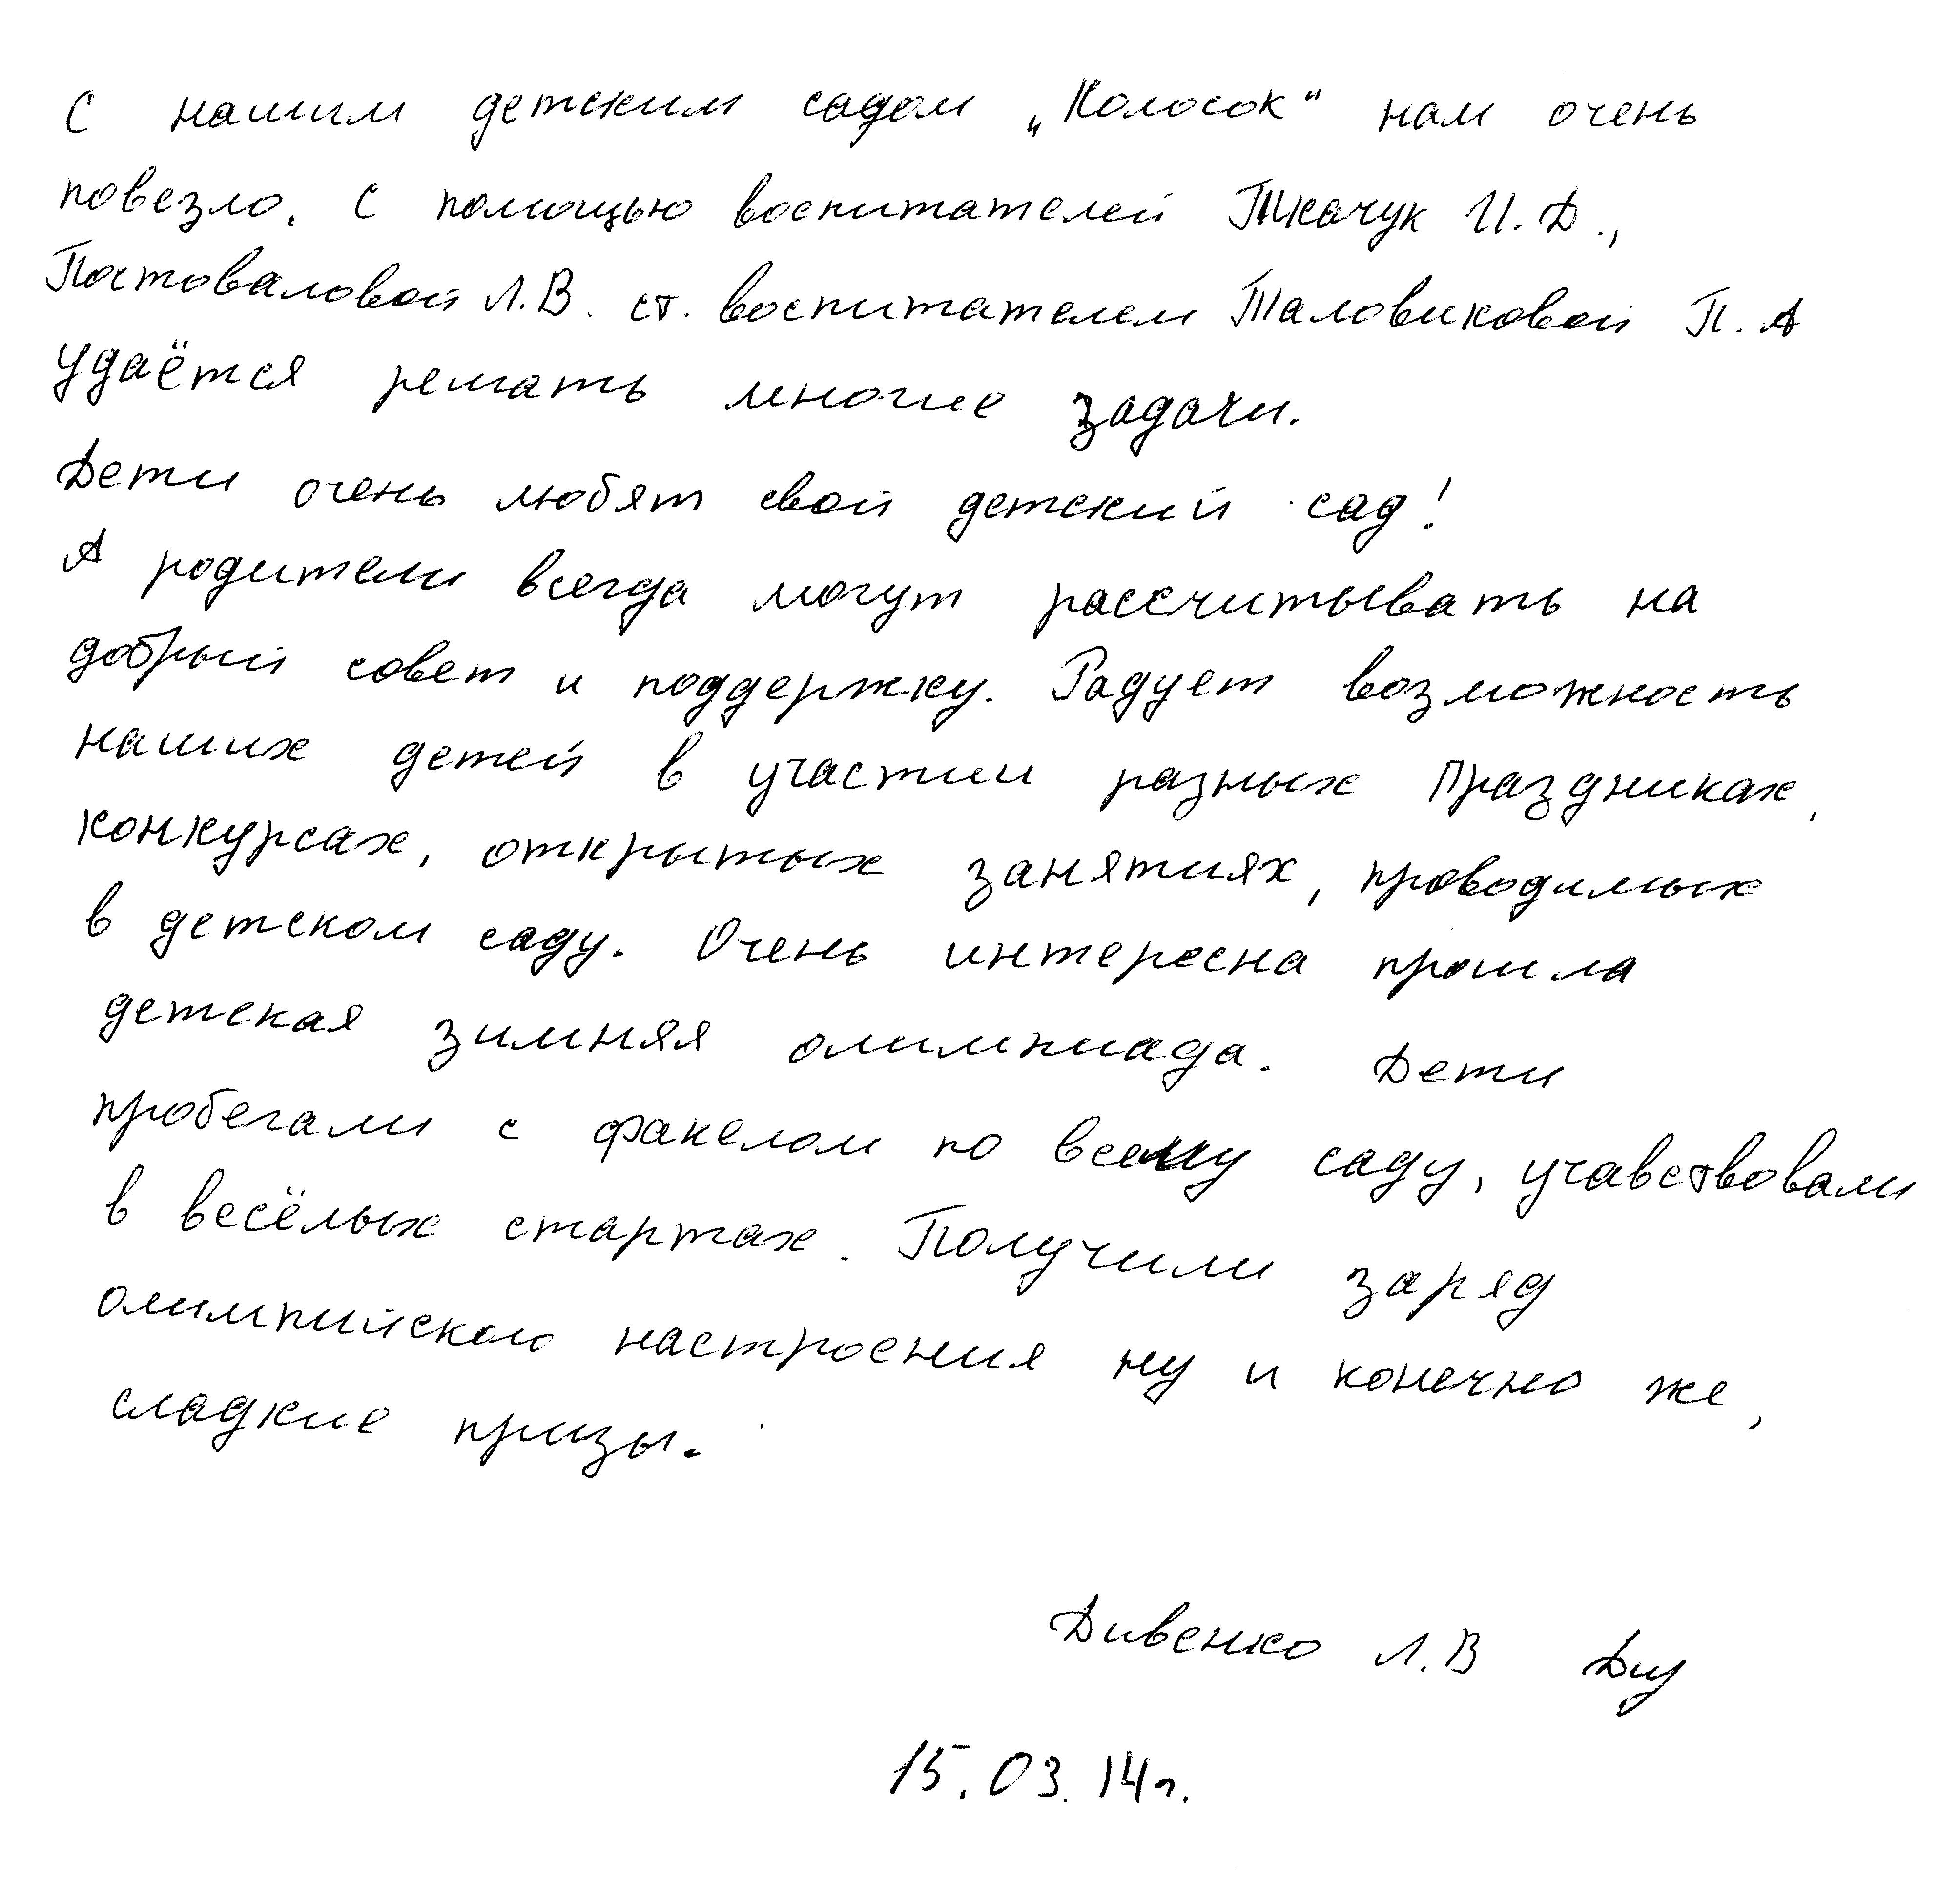 С нашим детским садом „Колосок" нам очень
повезло. С помощью воспитателей Ткачук И.Д.,
Постоваловой Л.В. ст. воспитателем Таловиковой П.А
удаётся решать многие задачи.
Дети очень любят свой детский сад!
А родители всегда могут рассчитывать на
добрый совет и поддержку. Радует возможность
наших детей в участии разных праздниках,
конкурсах, открытых занятиях, проводимых
в детском саду. Очень интересна прошла
детская зимняя олимпиада. Дети
пробегали с факелом по всему саду, учавствовали
в весёлых стартах. Получили заряд
олимпийского настроения ну и конечно же,
сладкие призы.
Дивенко Л.В
15.03.14г.